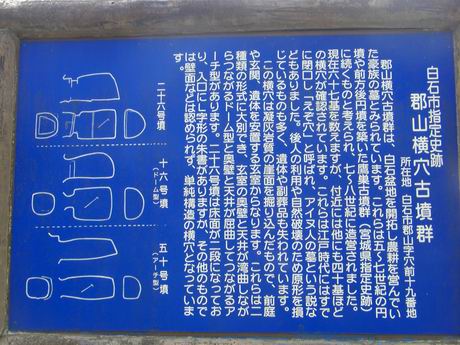 白石市指定史跡
郡山横穴古墳群
所在地 白石市郡山字穴前十九番地
郡山横穴古墳群は、白石盆地を開拓し農耕を営んでい
た豪族の墓とみられています。これらは五〜七世紀の円
墳や前方後円墳を築いた鷹巣古墳群（宮城県指定史跡）
に続くものと考えられ、七〜八世紀に造営されました。
現在六十七基を数えますが、付近には他にも四十基ほど
の横穴が確認されています。これらは江戸時代にはすで
に開口し「えぞ穴」と呼ばれ、アイヌ人の墓という説な
どもありました。後人の利用や自然破壊のため原形を損
じているものも多く、遺体や副葬品も失われています。
この横穴は凝灰岩質の崖面を掘り込んだもので、前庭
や玄関、遺体を安置する玄室からなります。これらは二
種類の形式に大別でき、玄室の奥壁と天井が湾曲しなが
らつながるドーム型と奥壁と天井が屈曲してつながるア
ーチ型があります。二十六号墳は床面が二段になってお
り、入口に L 字形の朱書がありますが、その他のもので
は壁画などは認められず、単純構造の横穴となっていま
す。
二十六号墳
十六号墳
（ドーム型）
五十号墳
（アーチ型）